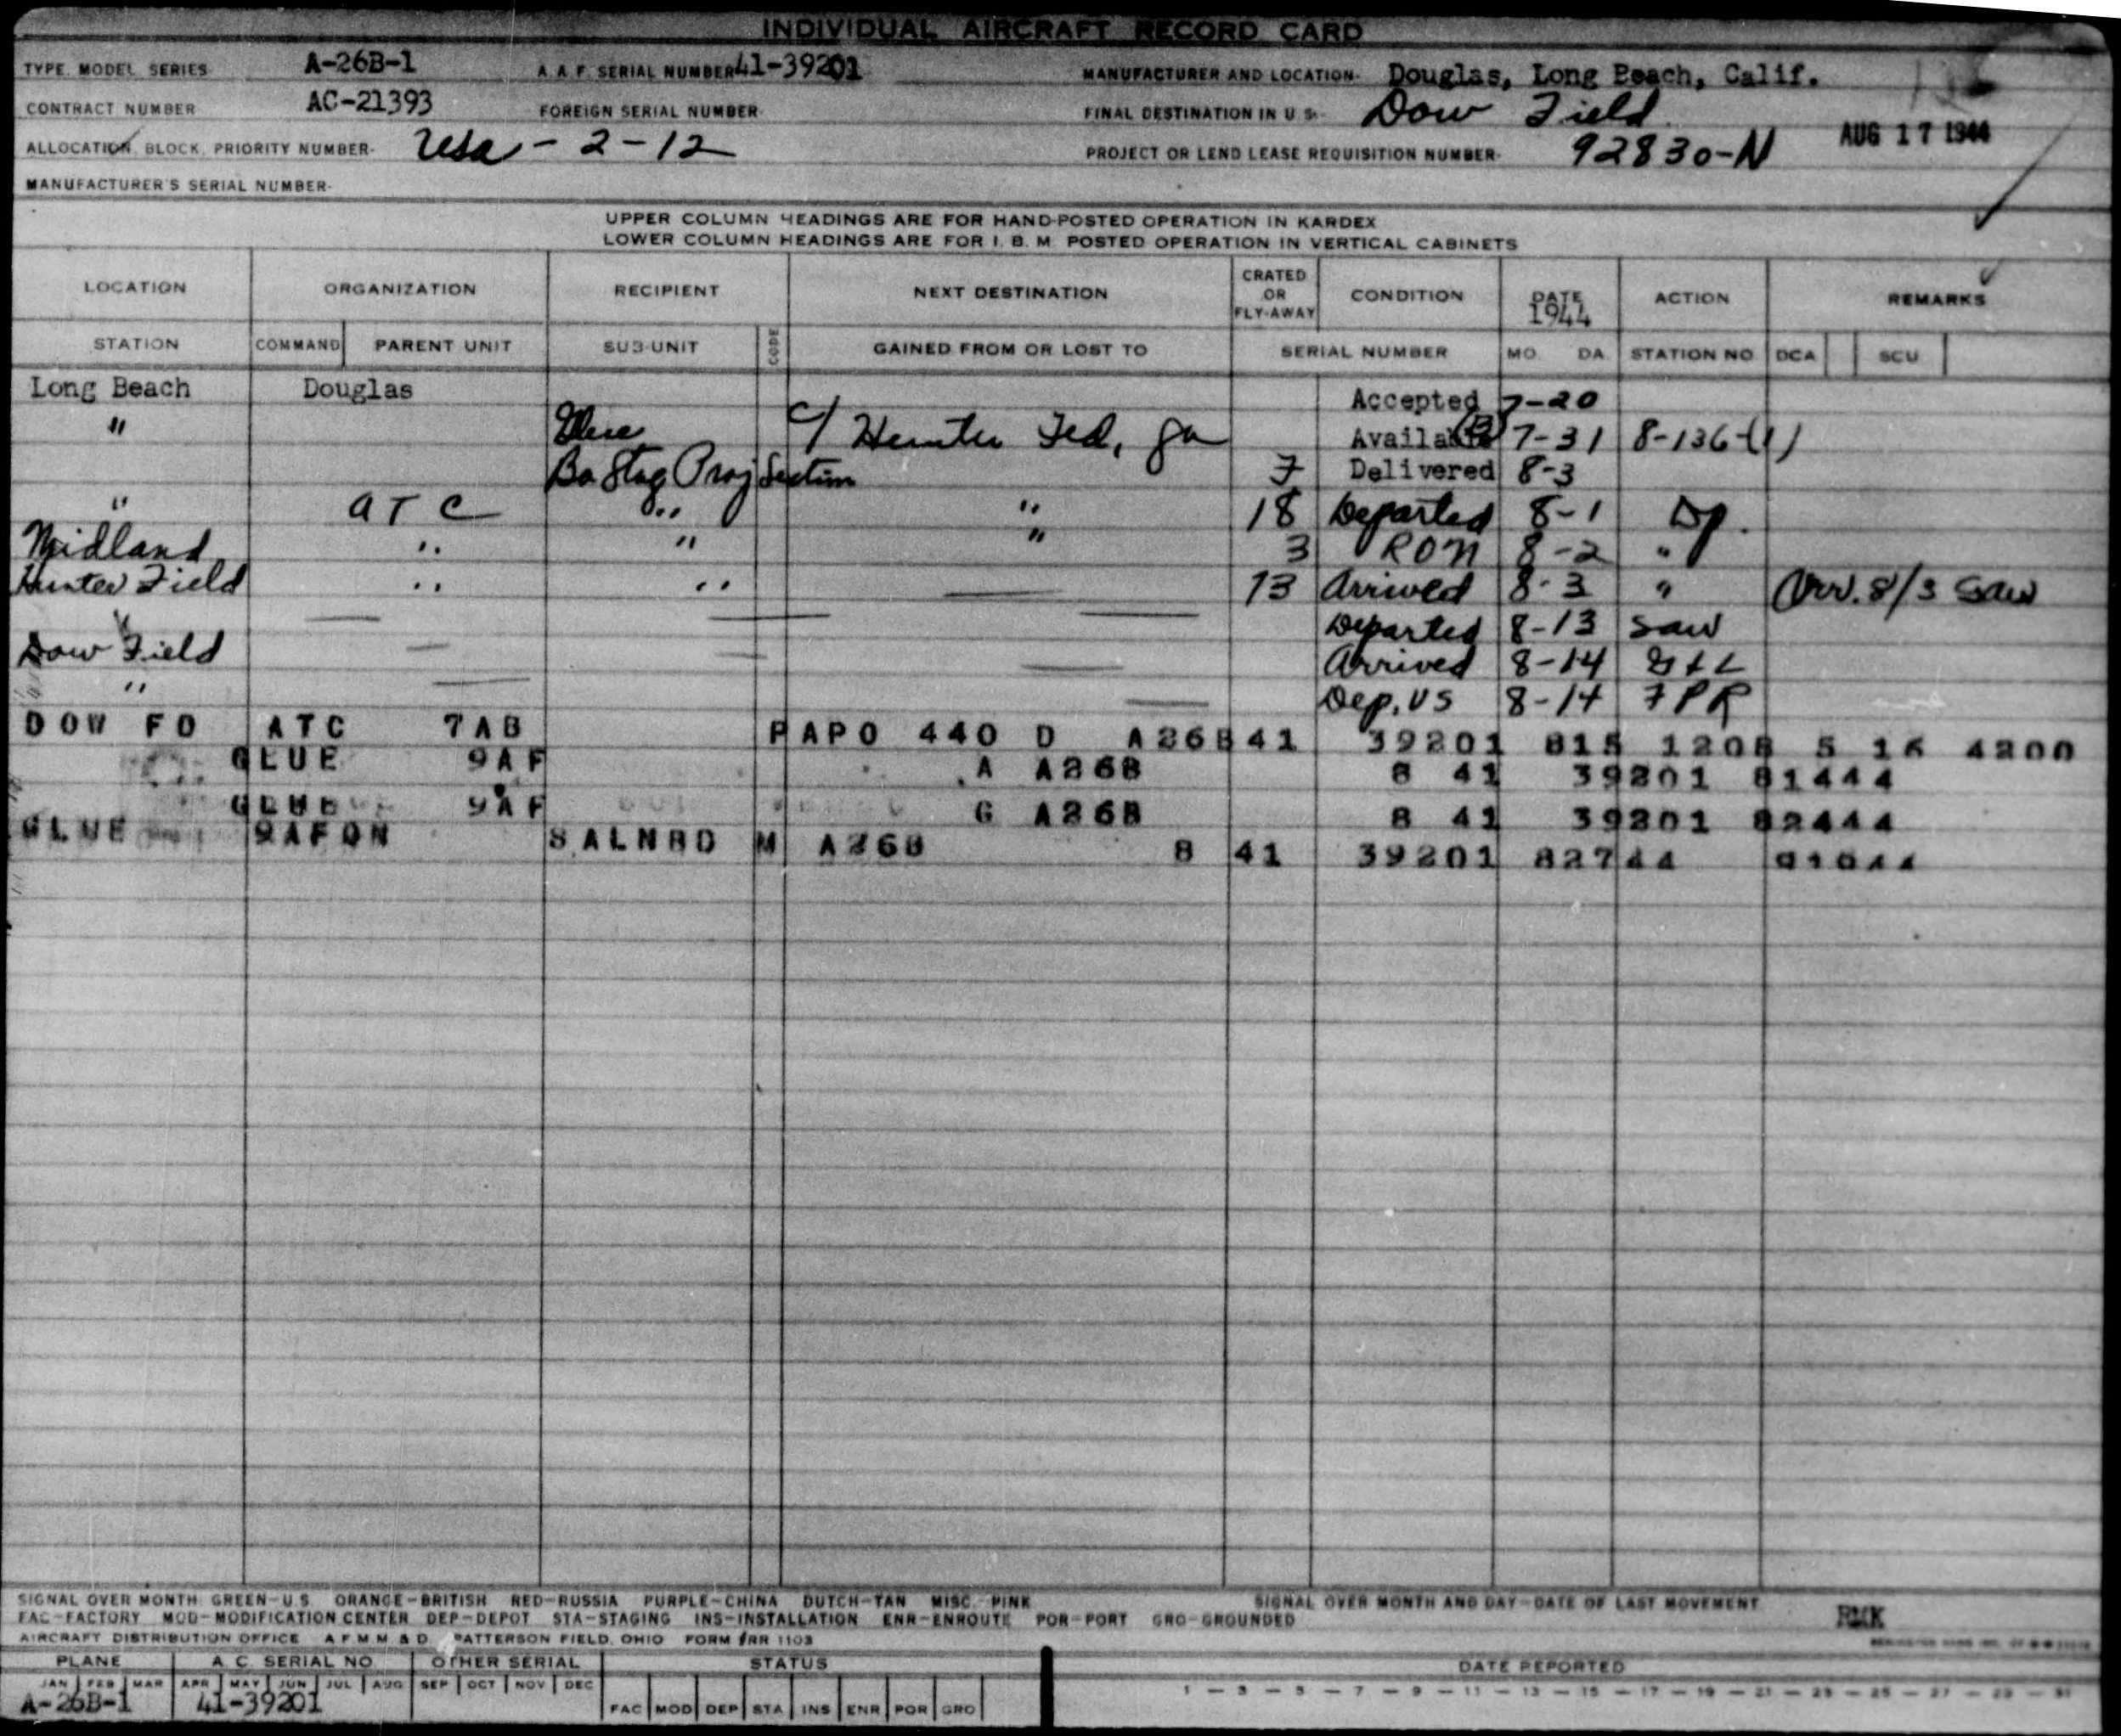 INDIVIDUAL AIRCRAFT RECORD CARD
TYPE, MODEL, SERIES A-26B-1 A.A.F. SERIAL NUMBER 41-39201 MANUFACTURER AND LOCATION- Douglas, Long Beach, Calif.
CONTRACT NUMBER AC-21393 FOREIGN SERIAL NUMBER- FINAL DESTINATION IN U.S.- Dow Field
ALLOCATION, BLOCK, PRIORITY NUMBER- Usa - 2-12 PROJECT OR LEND LEASE REQUISITION NUMBER- 92830-N AUG 17 1944
MANUFACTURER'S SERIAL NUMBER-
UPPER COLUMN HEADINGS ARE FOR HAND-POSTED OPERATION IN KARDEX
LOWER COLUMN HEADINGS ARE FOR I.B.M. POSTED OPERATION IN VERTICAL CABINETS
LOCATION ORGANIZATION RECIPIENT NEXT DESTINATION CRATED OR FLY-AWAY CONDITION DATE 1944 ACTION REMARKS
STATION COMMAND PARENT UNIT SUB-UNIT CODE GAINED FROM OR LOST TO SERIAL NUMBER MO. DA. STATION NO. DCA SCU
Long Beach Douglas Accepted 7-20
" Glue c/ Hunter Fld, Ga Available (B) 7-31 8-136-(1)
Ba Stag Proj Section 7 Delivered 8-3
" ATC " " 18 Departed 8-1 Dp.
Midland " " " 3 RON 8-2 "
Hunter Field " " 13 Arrived 8-3 " Arr. 8/3 Saw
Departed 8-13 Saw
Dow Field Arrived 8-14
" Dep. US 8-14 FPR
DOW FD ATC 7AB P APO 440 D A26B41 39201 815 1208 5 16 4200
GLUE 9AF A A26B 8 41 39201 81444
GLUE 9AF G A26B 8 41 39201 82444
GLUE 9AFON SALNBD M A26B 8 41 39201 82744
SIGNAL OVER MONTH: GREEN-U.S. ORANGE-BRITISH RED-RUSSIA PURPLE-CHINA DUTCH-TAN MISC.-PINK SIGNAL OVER MONTH AND DAY-DATE OF LAST MOVEMENT
FAC-FACTORY MOD-MODIFICATION CENTER DEP-DEPOT STA-STAGING INS-INSTALLATION ENR-ENROUTE POR-PORT GRO-GROUNDED RMK
AIRCRAFT DISTRIBUTION OFFICE A.F.M.M & D. PATTERSON FIELD, OHIO FORM #RR 1103
PLANE A.C. SERIAL NO. OTHER SERIAL STATUS DATE REPORTED
JAN FEB MAR APR MAY JUN JUL AUG SEP OCT NOV DEC 1 - 3 - 5 - 7 - 9 - 11 - 13 - 15 - 17 - 19 - 21 - 23 - 25 - 27 - 29 - 31
A-26B-1 41-39201 FAC MOD DEP STA INS ENR POR GRO